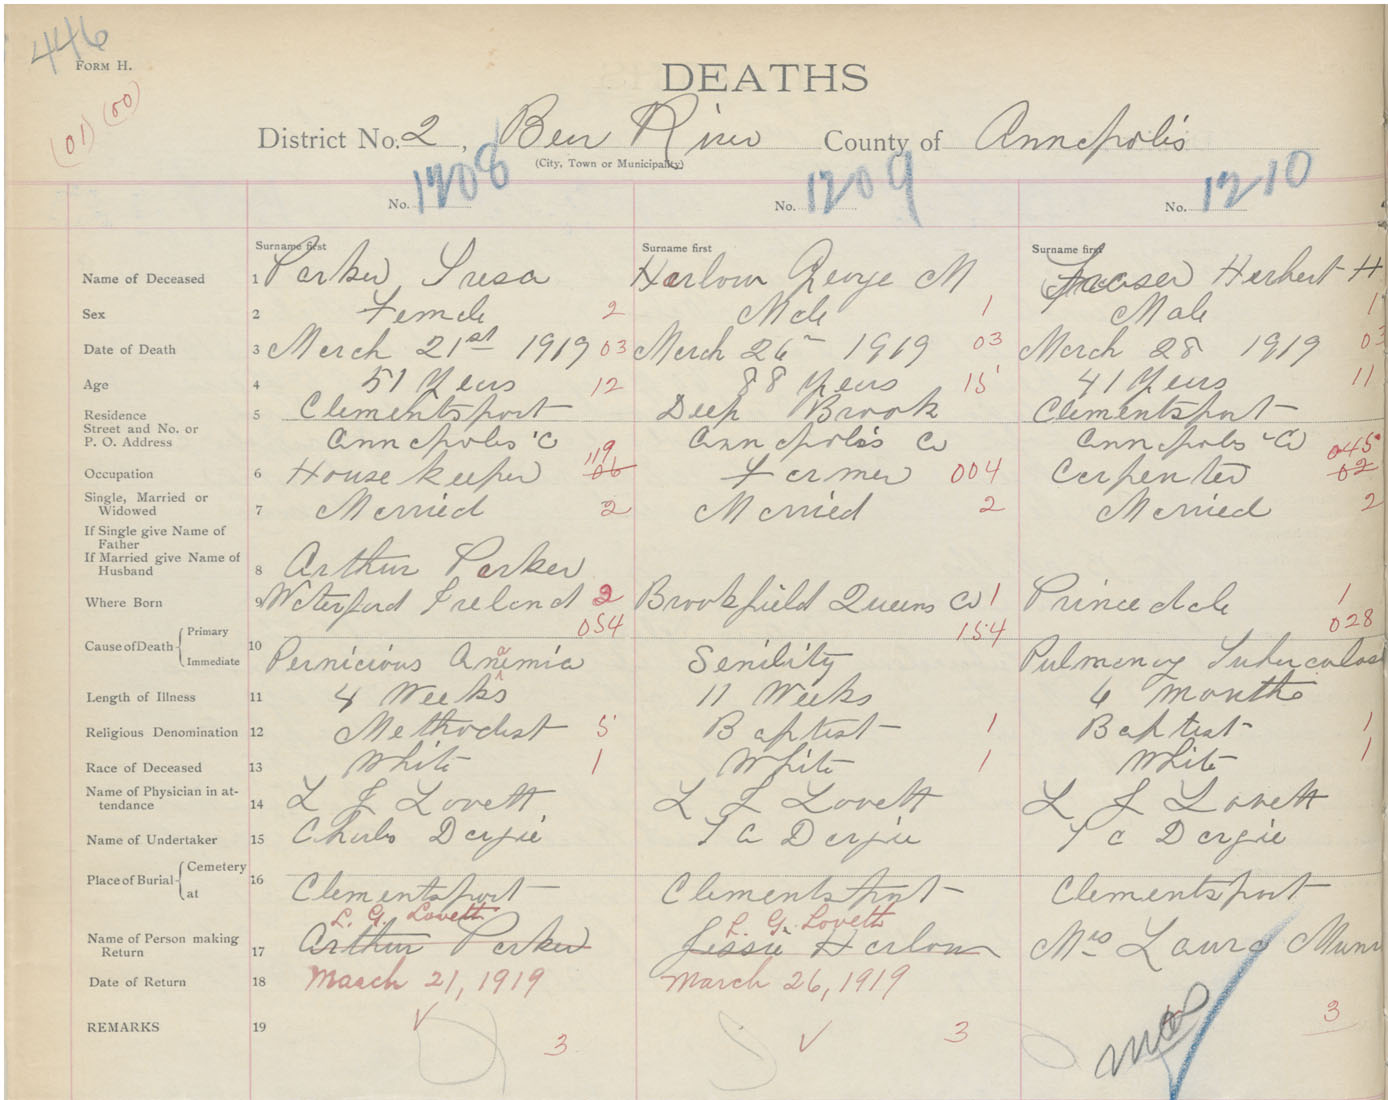 446
FORM H.
(01) (00)
DEATHS
District No. 2, Bear River County of Annapolis
(City, Town or Municipality)
No. 1208 No. 1209 No. 1210
Surname first Surname first Surname first
Name of Deceased 1 Parker Iresa Harlow George M Fraser Herbert H
Sex 2 Female 2 Male 1 Male 1
Date of Death 3 March 21st 1919 03 March 26th 1919 03 March 28 1919 03
Age 4 51 Years 12 88 Years 15 41 Years 11
Residence 5 Clementsport Deep Brook Clementsport
Street and No. or
P. O. Address Annapolis Co Annapolis Co Annapolis Co
119 045
Occupation 6 House keeper 06 Farmer 004 Carpenter 02
Single, Married or
Widowed 7 Married 2 Married 2 Married 2
If Single give Name of
Father
If Married give Name of
Husband 8 Arthur Parker
Where Born 9 Waterford Ireland 2 Brookfield Queens Co 1 Princedale 1
054 154 028
Cause of Death Primary
Immediate 10 Pernicious Anaemia Senility Pulmonary Tuberculos
Length of Illness 11 4 Weeks 11 Weeks 6 months
Religious Denomination 12 Methodist 5 Baptist 1 Baptist 1
Race of Deceased 13 White 1 White 1 White 1
Name of Physician in at-
tendance 14 L J Lovett L J Lovett L J Lovett
Name of Undertaker 15 Charles Dargie T C Dargie T C Dargie
Place of Burial Cemetery
at 16 Clementsport Clementsport Clementsport
L. G. Lovett L. G. Lovett
Name of Person making
Return 17 Arthur Parker Jessie Harlow Mrs Laura Munr
Date of Return 18 March 21, 1919 March 26, 1919
REMARKS 19
3 3 3